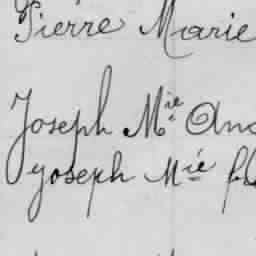 Pierre Marie
Joseph Mie And
Joseph Mie